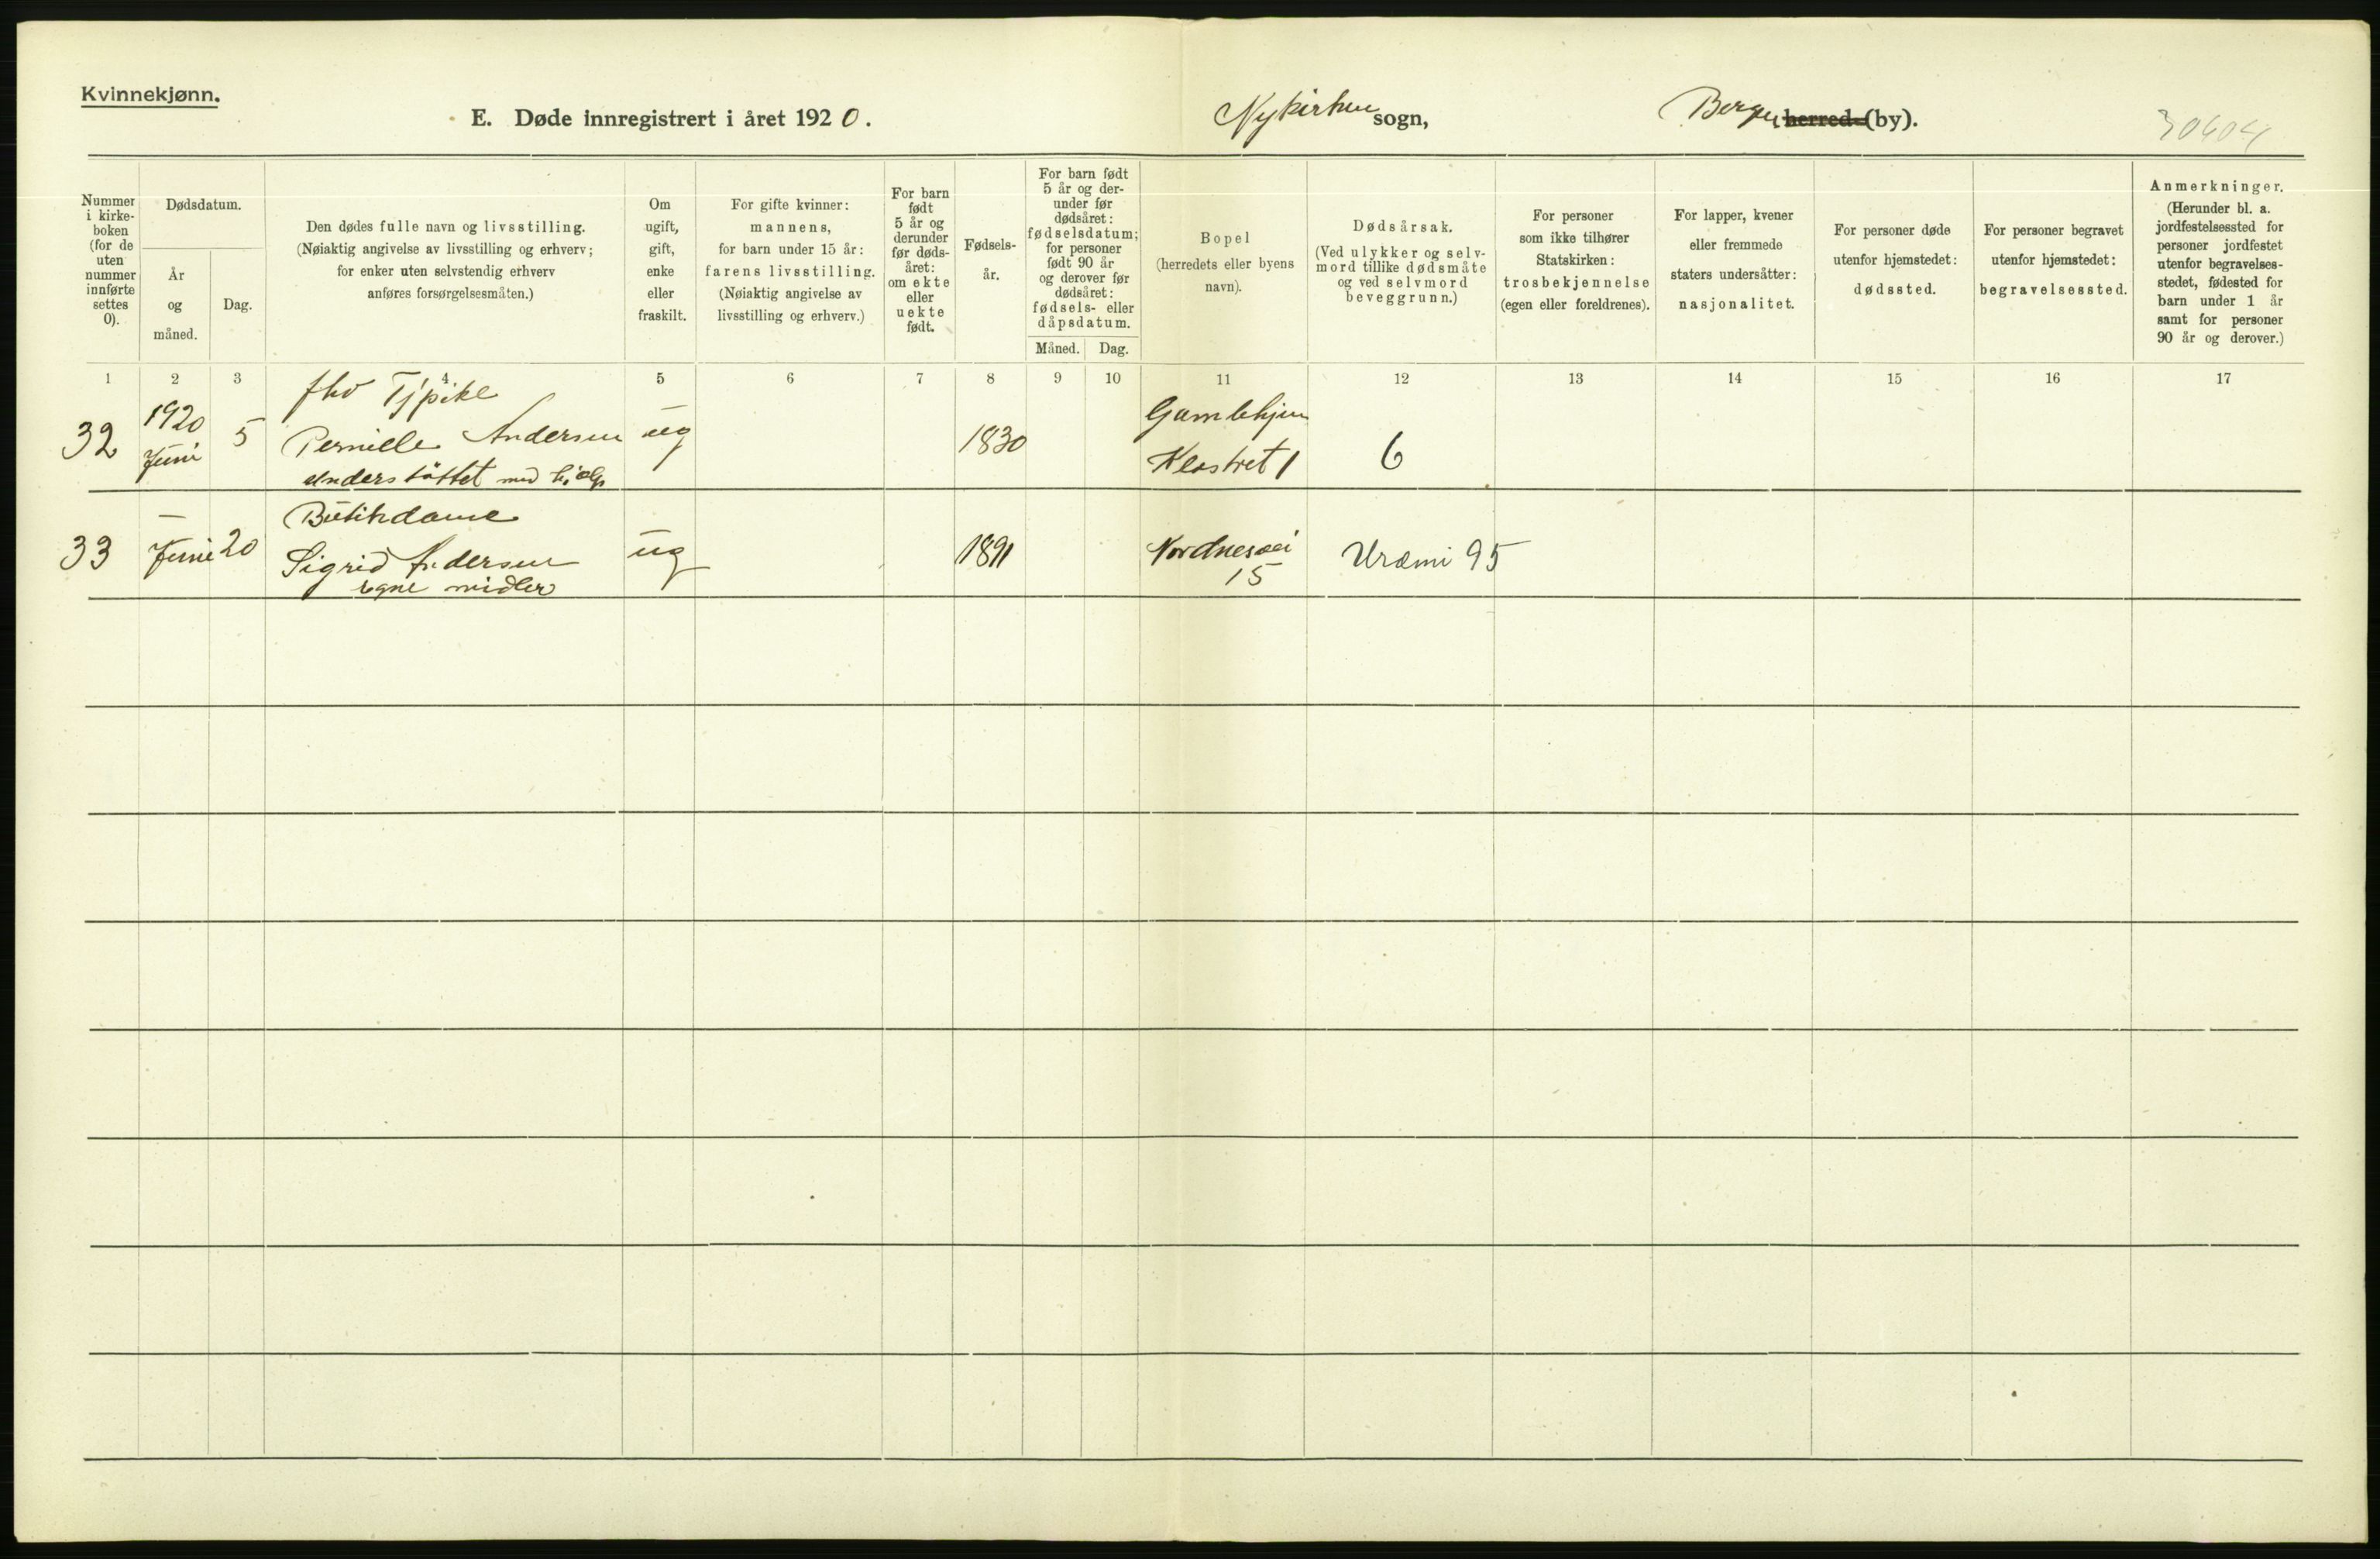 Kvinnekjønn.
E. Døde innregistrert i året 1920.
Nykirken sogn,
Bergen herred (by).
Nummer i kirke-
boken
(for de
uten
nummer
innførte
settes
0).
Dødsdatum.
År
og
måned.
Dag.
Den dødes fulle navn og livsstilling.
(Nøiaktig angivelse av livsstilling og erhverv;
for enker uten selvstendig erhverv
anføres forsørgelsesmåten.)
Om
ugift,
gift,
enke
eller
fraskilt.
For gifte kvinner:
mannens,
for barn under 15 år:
farens livsstilling.
(Nøiaktig angivelse av
livsstilling og erhverv.)
For barn
født
5 år og
derunder
før døds-
året:
om ekte
eller
uekte
født.
Fødsels-
år.
For barn født
5 år og der-
under før
dødsåret:
fødselsdatum;
for personer
født 90 år
og derover før
dødsåret:
fødsels- eller
dåpsdatum.
Måned.
Dag.
Bopel
(herredets eller byens
navn).
Dødsårsak.
(Ved ulykker og selv-
mord tillike dødsmåte
og ved selvmord
beveggrunn.)
For personer
som ikke tilhører
Statskirken:
trosbekjennelse
(egen eller foreldrenes).
For lapper, kvener
eller fremmede
staters undersåtter:
nasjonalitet.
For personer døde
utenfor hjemstedet:
dødssted.
For personer begravet
utenfor hjemstedet:
begravelsessted.
Anmerkninger.
(Herunder bl. a.
jordfestelsessted for
personer jordfestet
utenfor begravelses-
stedet, fødested for
barn under 1 år
samt for personer
90 år og derover.)
1 2 3 4 5 6 7 8 9 10 11 12 13 14 15 16 17
fhv Tjpike
32 1920 Juni 5 Pernille Andersen ug 1830 Gamlehjem Klostret 1 6
Understøttet med
Butikdame
33 — Juni 20 Sigrid Andersen ug 1891 Nordnesvei 15 Uræmi 95
egne midler